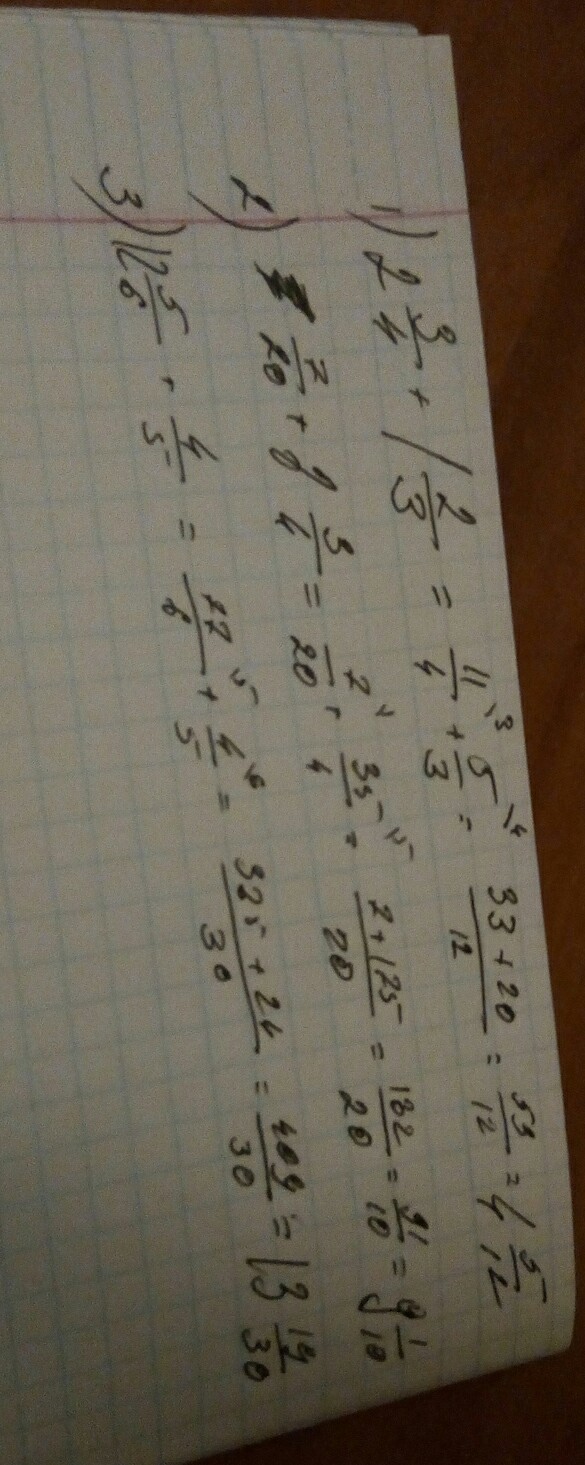 1) 2 3/4 + 1 2/3 = 11/4 \3 + 5/3 \4 = 33+20/12 = 53/12 = 4 5/12
2) 7/20 + 8 3/4 = 7/20 + 35/4 \5 = 7+175/20 = 182/20 = 91/10 = 9 1/10
3) 12 5/6 + 4/5 = 77/6 \5 + 4/5 \6 = 385+24/30 = 409/30 = 13 19/30